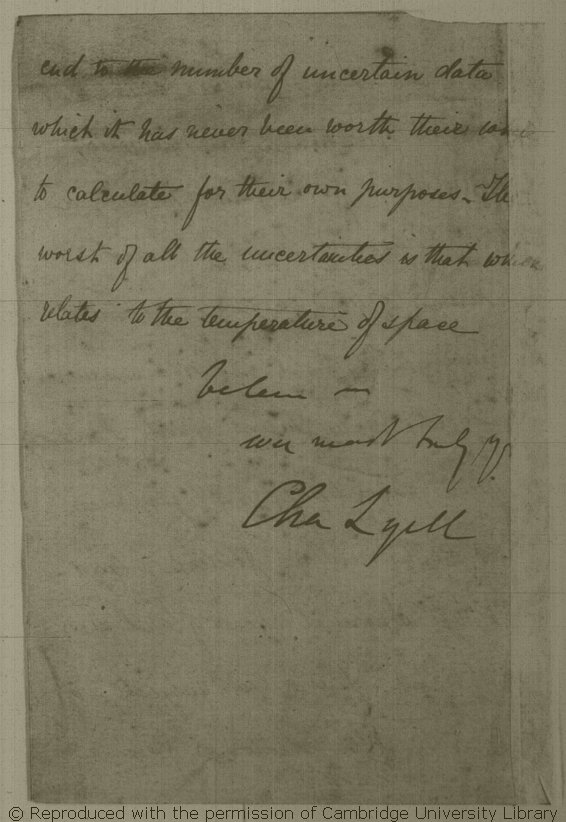 end to the number of uncertain data
which it has never been worth their
to calculate for their own purposes. The
worst of all the uncertainties is that which
relates to the temperature of space
believe me
ever most truly yrs
Cha Lyell
© Reproduced with the permission of Cambridge University Library